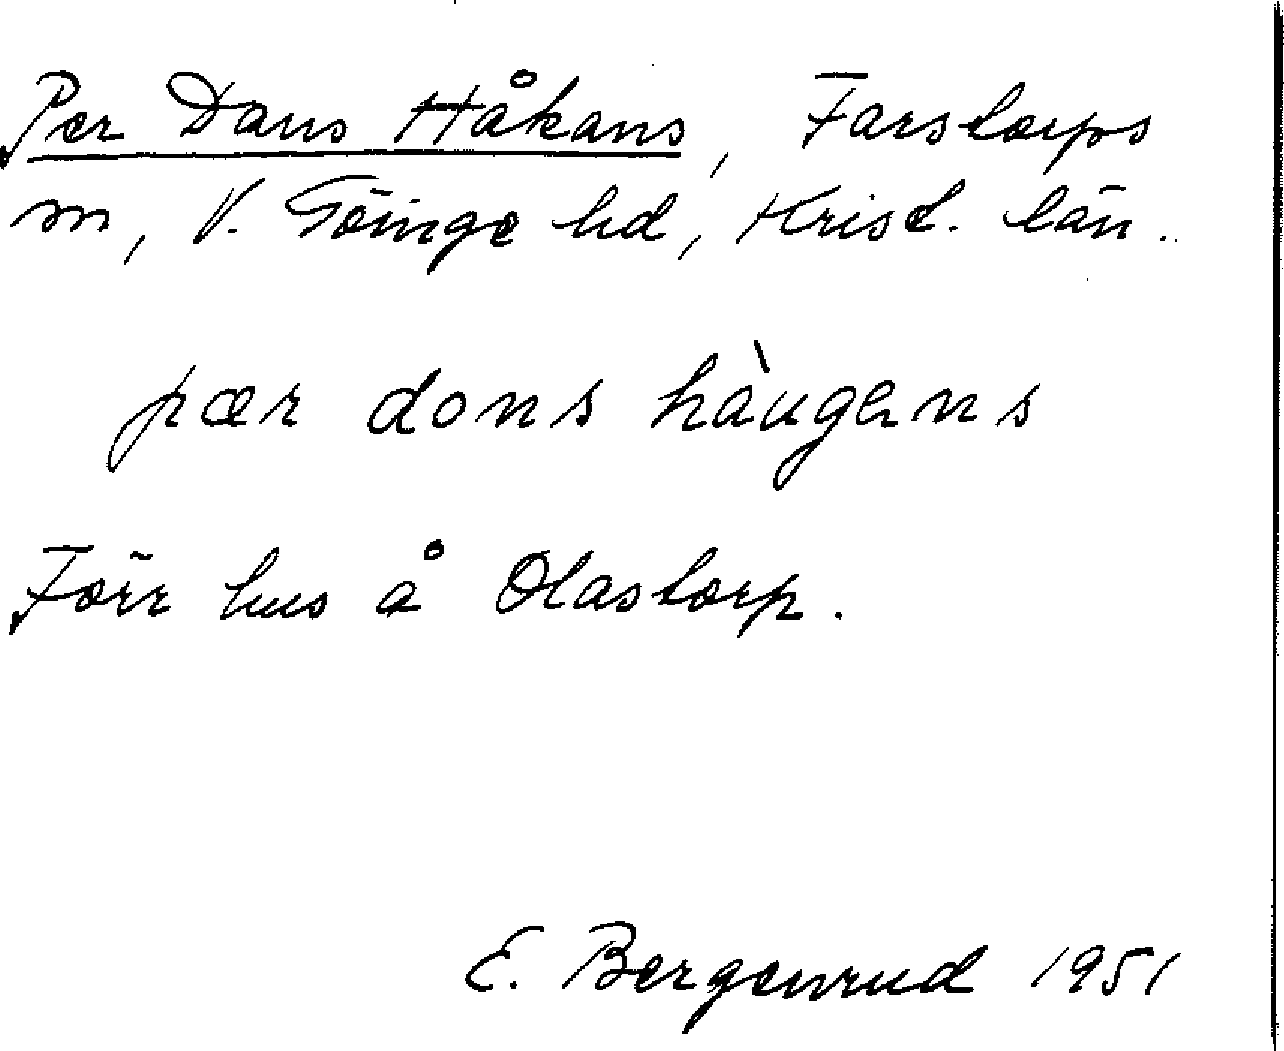 Per Dans Håkans, Farstorps
sn, V. Göinge hd, Krist. län.
pær dons hàugans
Förr hus å Olastorp.
E. Bergenrud 1951